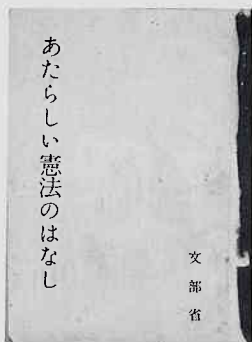 あたらしい憲法のはなし
文部省